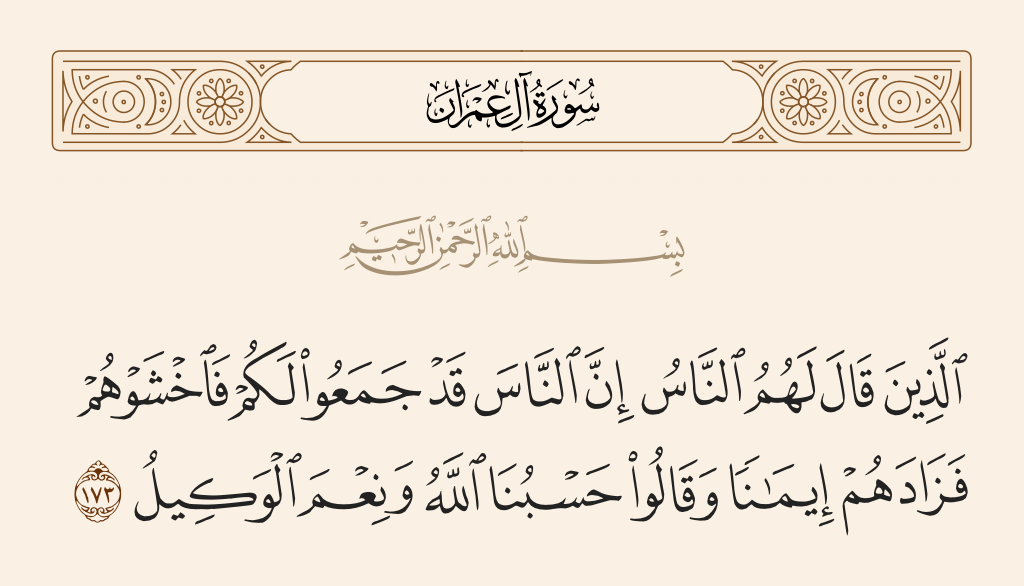 سُورَةُ آلِ عِمْرَان
بِسْمِ ٱللَّهِ ٱلرَّحْمَٰنِ ٱلرَّحِيمِ
ٱلَّذِينَ قَالَ لَهُمُ ٱلنَّاسُ إِنَّ ٱلنَّاسَ قَدْ جَمَعُوا۟ لَكُمْ فَٱخْشَوْهُمْ
فَزَادَهُمْ إِيمَٰنًا وَقَالُوا۟ حَسْبُنَا ٱللَّهُ وَنِعْمَ ٱلْوَكِيلُ ١٧٣